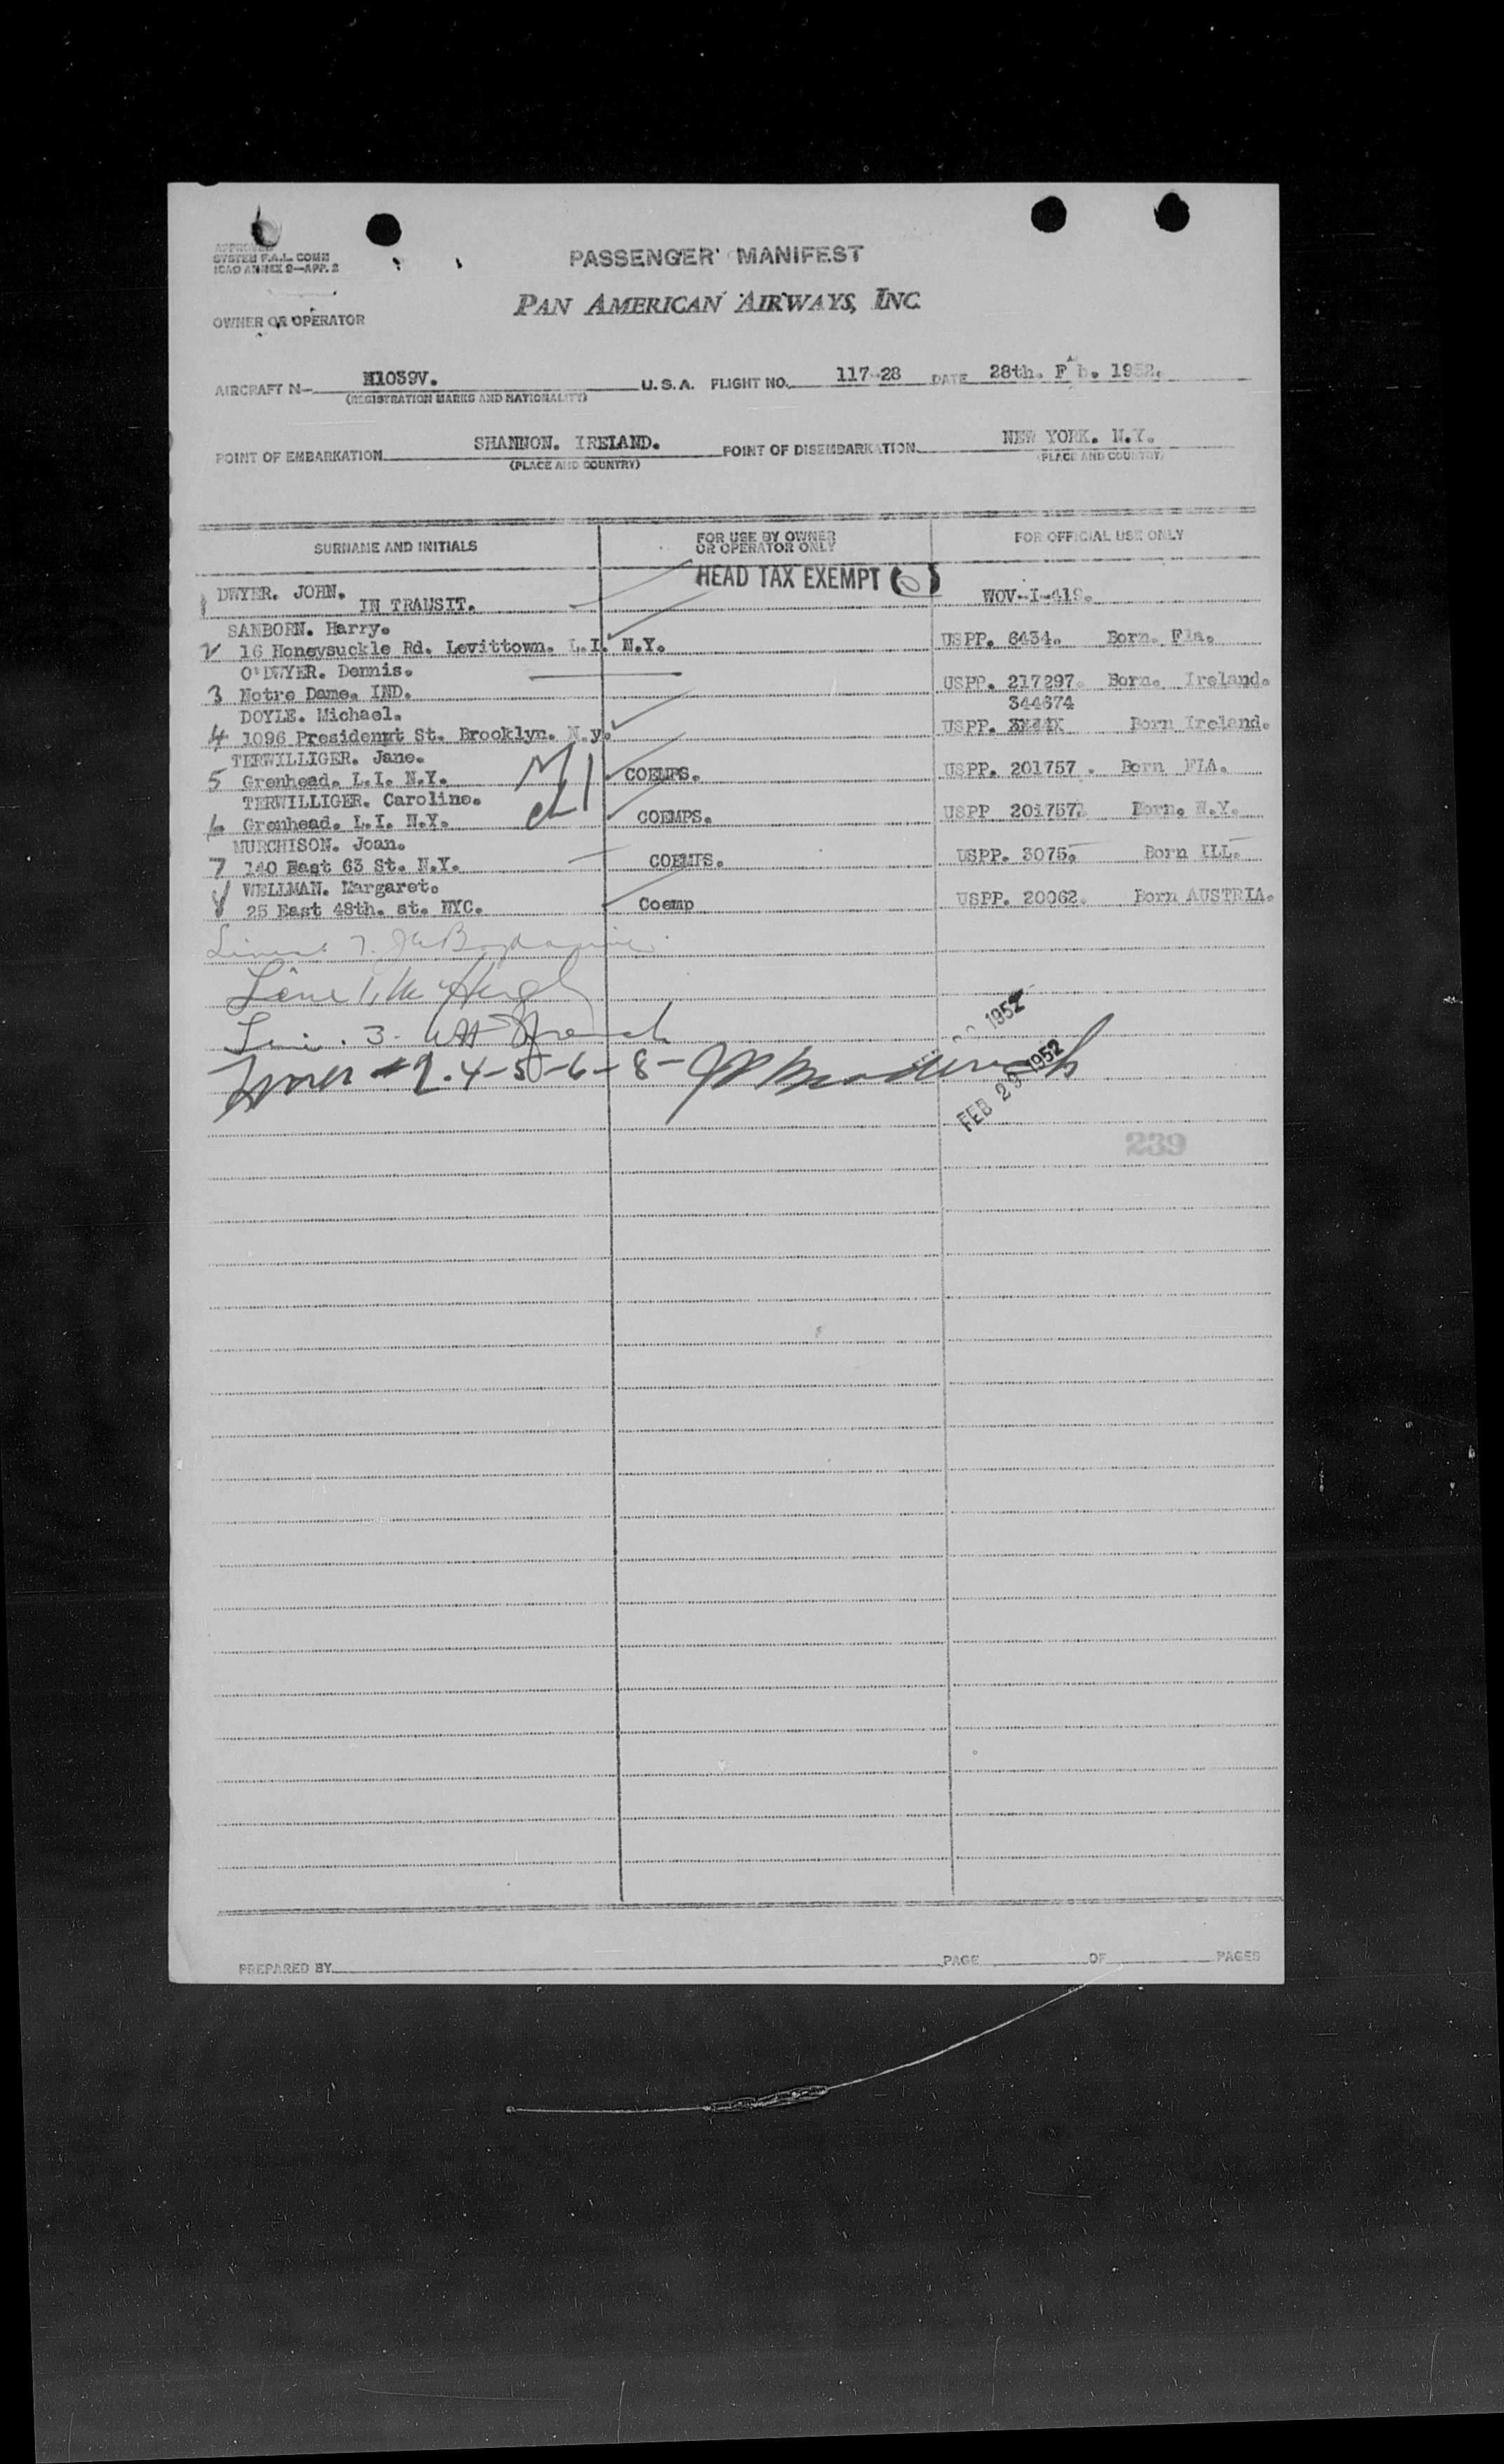 APPROVED
SYSTEM F.A.L. COMM
ICAO ANNEX 9—APP. 2
PASSENGER MANIFEST
PAN AMERICAN AIRWAYS, INC.
OWNER OR OPERATOR
AIRCRAFT N— N1039V. U.S.A. FLIGHT NO. 117-28 DATE 28th. F b. 1952.
(REGISTRATION MARKS AND NATIONALITY)
POINT OF EMBARKATION SHANNON. IRELAND. POINT OF DISEMBARKATION NEW YORK. N.Y.
(PLACE AND COUNTRY) (PLACE AND COUNTRY)
SURNAME AND INITIALS FOR USE BY OWNER OR OPERATOR ONLY FOR OFFICIAL USE ONLY
HEAD TAX EXEMPT
1 DWYER. JOHN.
IN TRANSIT. WOV-I-419.
SANBORN. Harry.
2 16 Honeysuckle Rd. Levittown. L.I. N.Y. USPP. 6434. Born. Fla.
O'DWYER. Dennis.
3 Notre Dame. IND. USPP. 217297. Born. Ireland.
DOYLE. Michael. 344674
4 1096 President St. Brooklyn. N.y. USPP. Born Ireland.
TERWILLIGER. Jane.
5 Grenhead. L.I. N.Y. COEMPS. USPP. 201757. Born FLA.
TERWILLIGER. Caroline.
6 Grenhead. L.I. N.Y. COEMPS. USPP 201757. Born. N.Y.
MURCHISON. Joan.
7 140 East 63 St. N.Y. COEMPS. USPP. 3075. Born ILL.
8 WELLMAN. Margaret.
25 East 48th. st. NYC. Coemp USPP. 20062. Born AUSTRIA.
Line 7.
Line 1. McHugh
Line. 3. 1952
Lines #2.4-5-6-8-
FEB 29 1952
239
PREPARED BY PAGE OF PAGES